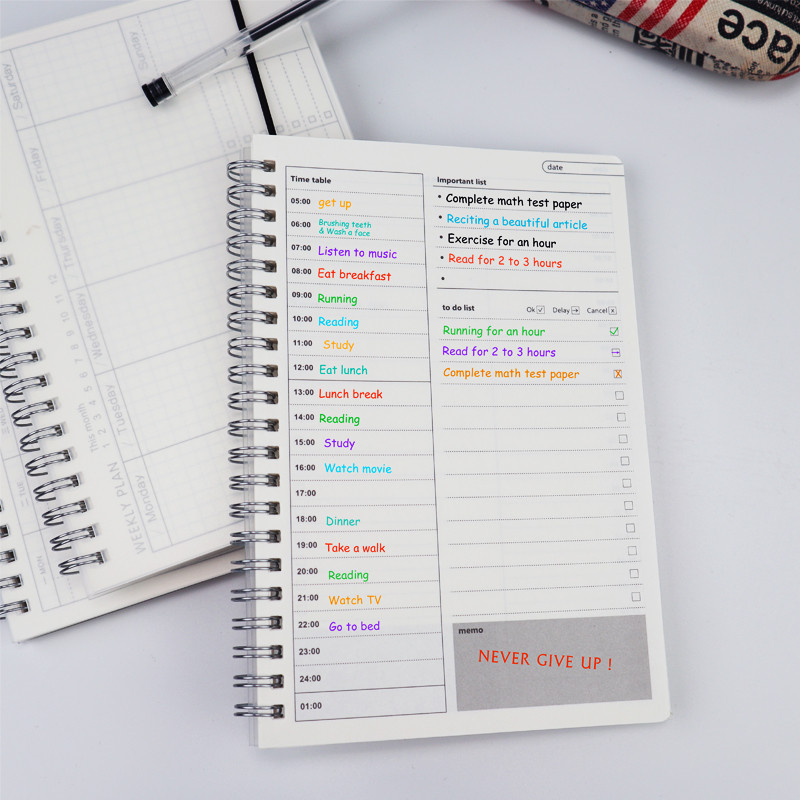 date
Time table
05:00 get up
06:00 Brushing teeth
& Wash a face
07:00 Listen to music
08:00 Eat breakfast
09:00 Running
10:00 Reading
11:00 Study
12:00 Eat lunch
13:00 Lunch break
14:00 Reading
15:00 Study
16:00 Watch movie
17:00
18:00 Dinner
19:00 Take a walk
20:00 Reading
21:00 Watch TV
22:00 Go to bed
23:00
24:00
01:00
Important list
• Complete math test paper
• Reciting a beautiful article
• Exercise for an hour
• Read for 2 to 3 hours
•
to do list Ok Delay Cancel
Running for an hour
Read for 2 to 3 hours
Complete math test paper
memo
NEVER GIVE UP !
WEEKLY PLAN
This month
1 2 3 4 5 6 7 8 9 10 11 12
/ Monday
/ Tuesday
/ Wednesday
/ Thursday
Friday
/ Saturday
Sunday
MON
TUE
lace